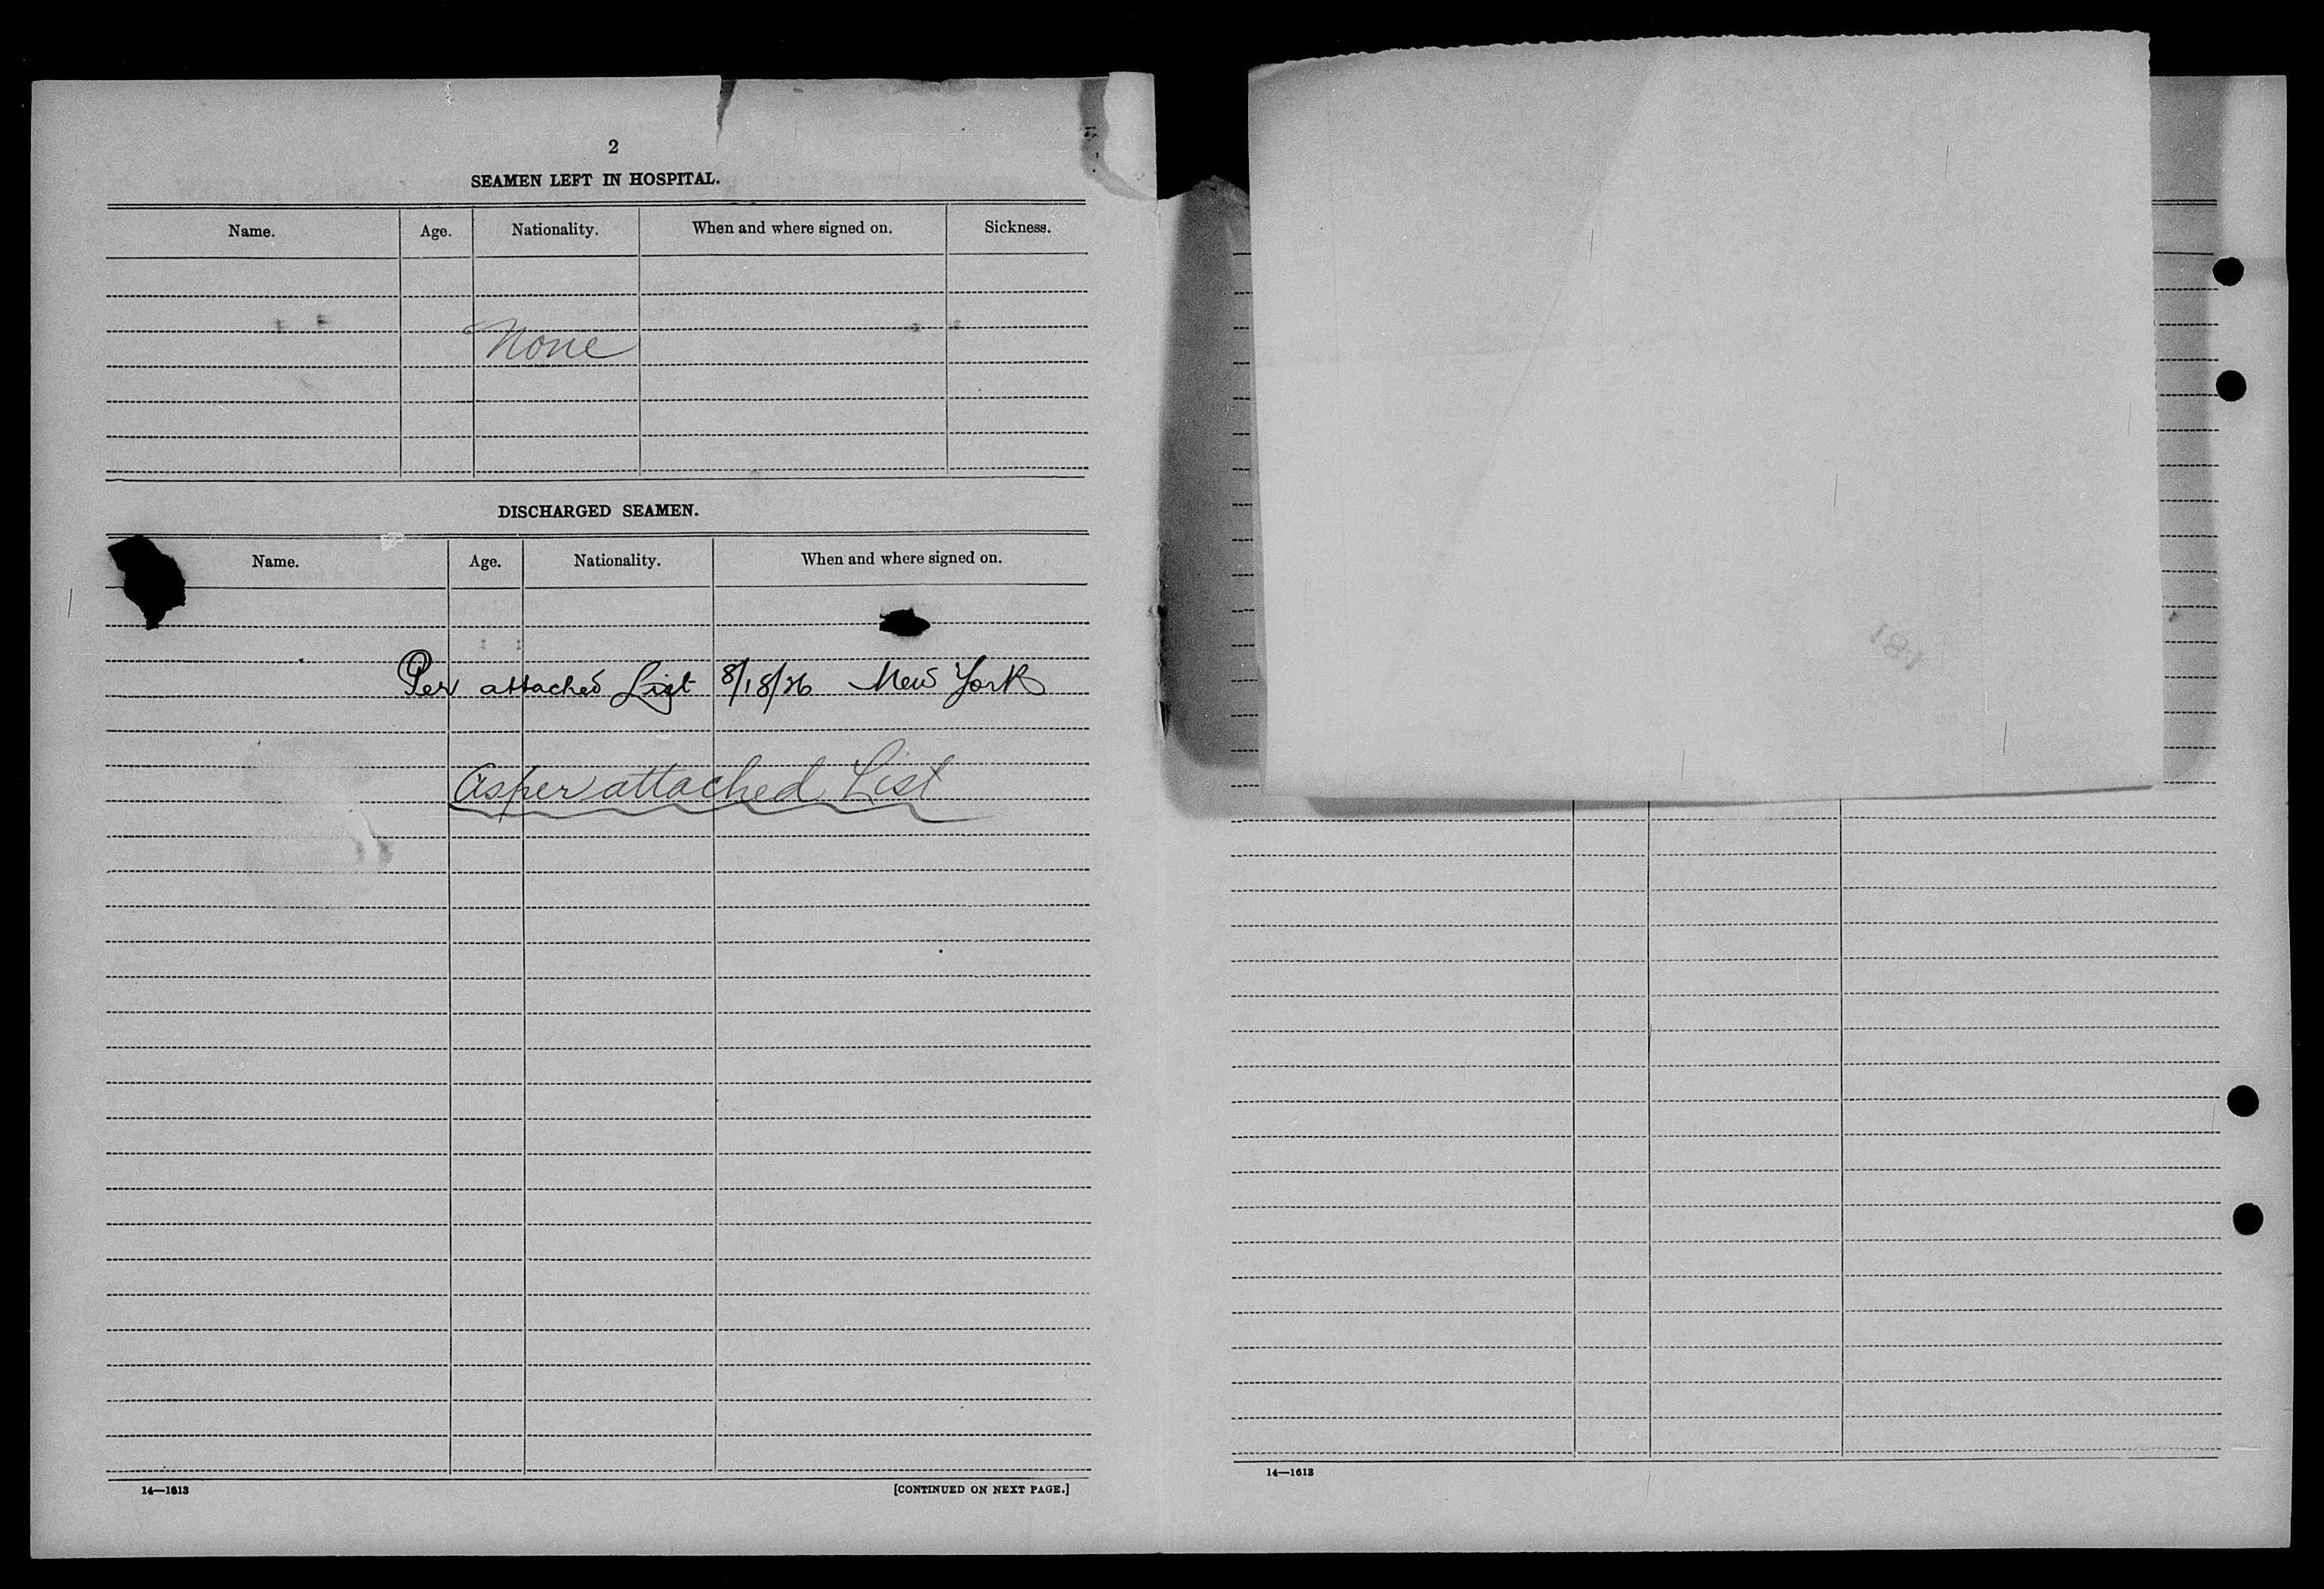 2
SEAMEN LEFT IN HOSPITAL.
Name. Age. Nationality. When and where signed on. Sickness.
None
DISCHARGED SEAMEN.
Name. Age. Nationality. When and where signed on.
Per attached List 8/18/26 New York
As per attached List
14—1613 [CONTINUED ON NEXT PAGE.]
181
14—1613